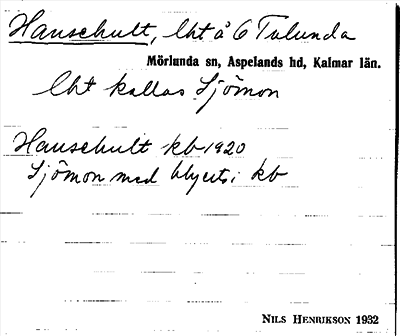 Hanschult, lht å 6 Tulunda
Mörlunda sn, Aspelands hd, Kalmar län.
lht kallas Sjömon
Hanschult kb 1920
Sjömon med blyerts i kb
NILS HENRIKSON 1932